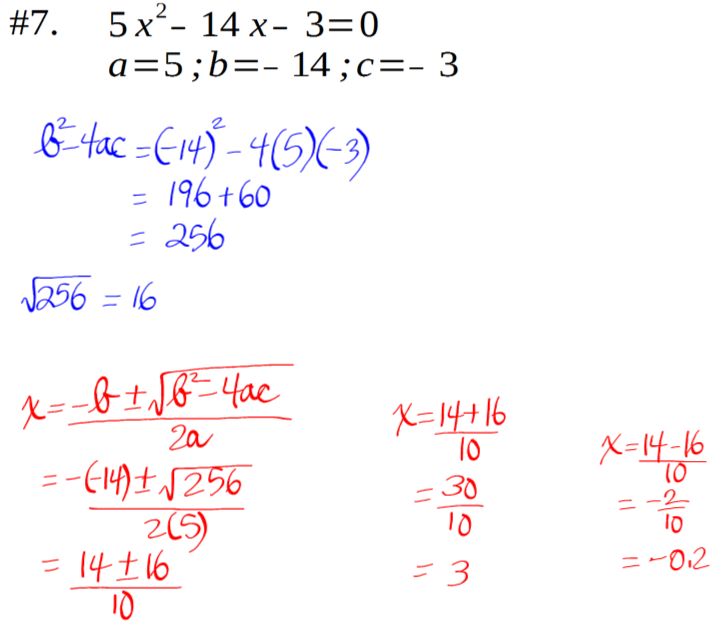 #7. 5x² – 14x – 3 = 0
a=5 ; b=– 14 ; c=– 3
b²-4ac = (-14)² - 4(5)(-3)
= 196 + 60
= 256
√256 = 16
x = (-b ± √(b²-4ac))/(2a)
= (-(-14) ± √256)/(2(5))
= (14 ± 16)/10
x = (14+16)/10
= 30/10
= 3
x = (14-16)/10
= -2/10
= -0.2